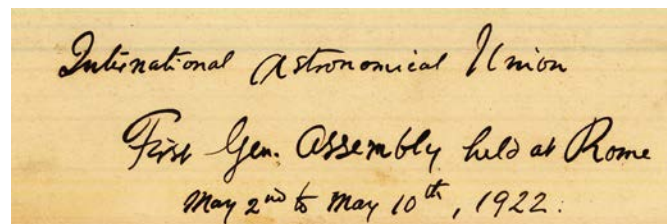 International Astronomical Union
First Gen. Assembly held at Rome
May 2nd to May 10th, 1922.